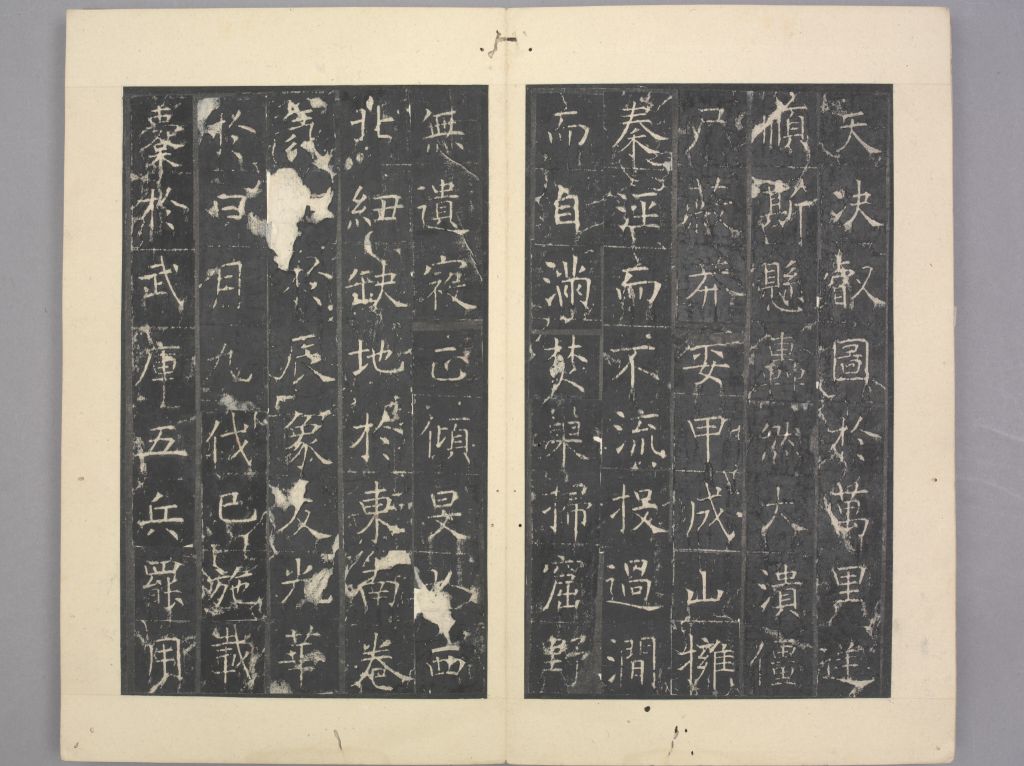 天決叡圖於萬里逆
順斯懸轟然大潰僵
尸蔽莽委甲成山擁
秦涇而不流投過澗
而自滿焚巢掃窟野
無遺寇正傾旻西
北紐缺地於東南卷
氛於辰象反光華
於日月九伐已施載
櫜於武庫五兵罷用